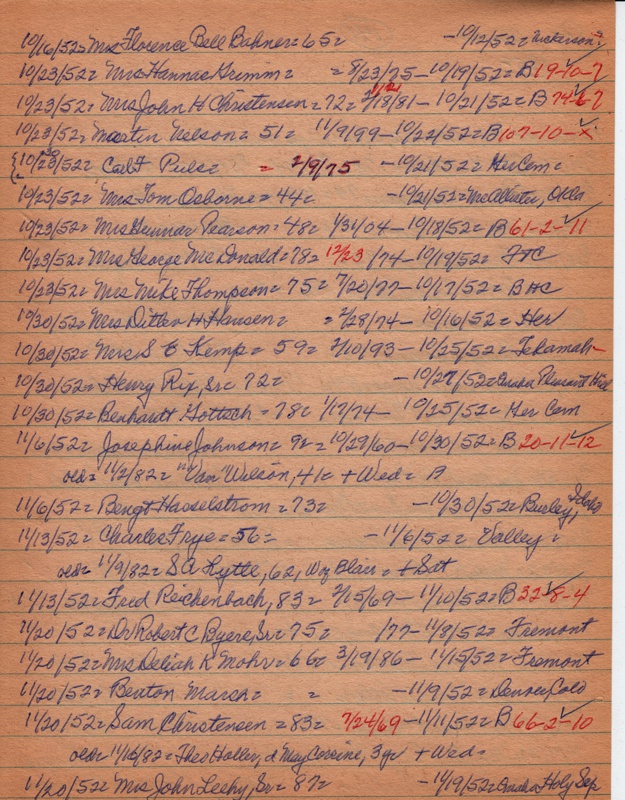 10/16/52= Mrs Florence Bell Bahner= 65= -10/12/52= Nickerson=
10/23/52= Mrs Hannas Grimm= = 8/23/75-10/19/52= B 19-10-7
10/23/52= Mrs John H Christensen= 72= 2/18/81-10/21/52= B 74-6-7
10/23/52= Martin Nelson= 51= 11/9/99-10/22/52= B 107-10-x
10/23/52= Carl F Puls= = 2/9/75 -10/21/52= Her Cem=
10/23/52= Mrs Tom Osborne= 44= -10/21/52= McAlister, Okla
10/23/52= Mrs Gunnar Pearson= 48= 1/31/04-10/18/52= B 61-2-11
10/23/52= Mrs George McDonald= 78= 12/23/74-10/19/52= FTC
10/23/52= Mrs Mike Thompson= 75= 7/20/77-10/17/52= BHC
10/30/52= Mrs Ditlev H Hansen= = 2/28/74-10/16/52= Her
10/30/52= Mrs S C Kemp= 59= 2/10/93-10/25/52= Tekamah-
10/30/52= Henry Rix, Sr= 72= -10/27/52= Omaha Pleasant Hill
10/30/52= Benhardt Gottsch= 78= 1/17/74- 10/25/52= Her Cem
11/6/52= Josephine Johnson= 92= 10/29/60-10/30/52= B 20-11-12
old= 11/2/82= "Van" Wilson, 41= + Wed= B
11/6/52= Bengt Hasselstrom= 73= -10/30/52= Burley, Idaho
11/13/52= Charles Frye= 56= -11/6/52= Valley=
old= 11/9/82= S A Lytle, 62, W of Blair= + Sat
11/13/52= Fred Reichenbach, 83= 2/15/69-11/10/52= B 32-8-4
11/20/52= Dr Robert C Byers, Sr= 75= /77-11/8/52= Fremont
11/20/52= Mrs Deliah K Mohr= 66= 3/19/86-11/15/52= Fremont
11/20/52= Benton March= = -11/9/52= Denver Colo
11/20/52= Sam Christensen= 83= 7/24/69-11/11/52= B 66-2-10
old= 11/16/82= Theo Haller, d May Corrine, 3 yr + Wed=
11/20/52= Mrs John Leehy, Sr= 87= -11/19/52= Omaha Holy Sep